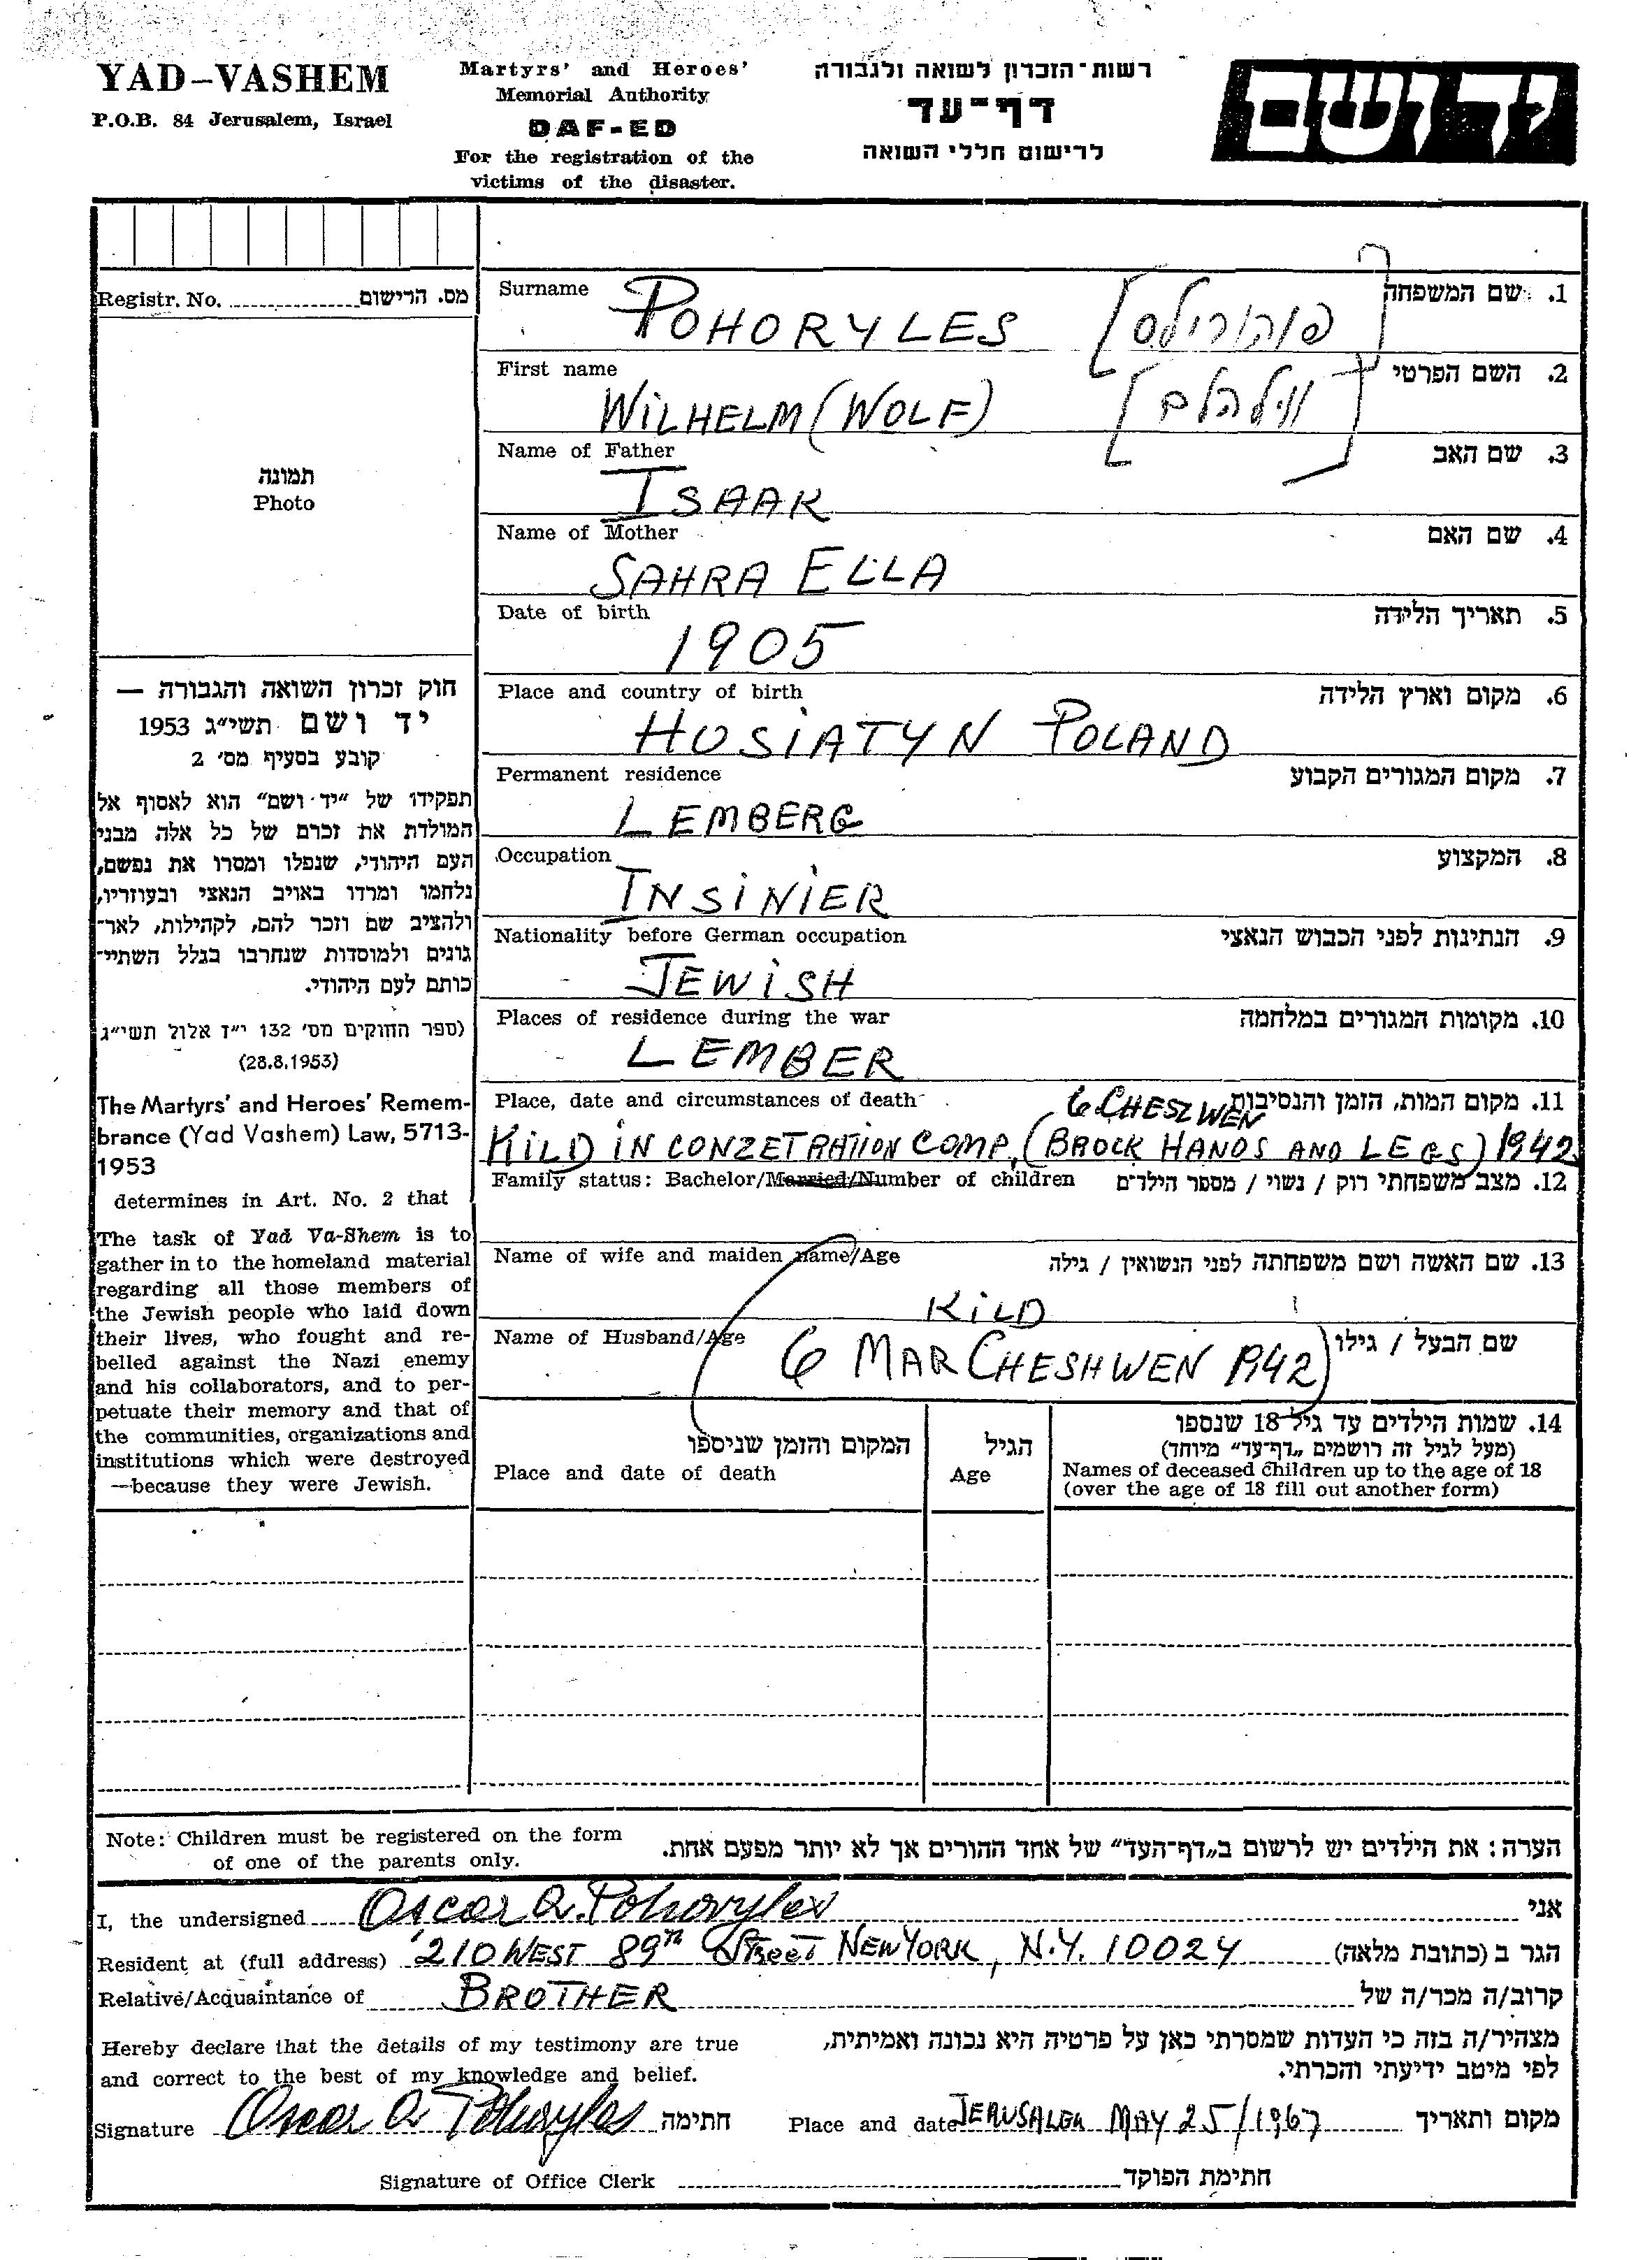 YAD-VASHEM
P.O.B. 84 Jerusalem, Israel
Martyrs' and Heroes'
Memorial Authority
DAF-ED
For the registration of the
victims of the disaster.
רשות־הזכרון לשואה ולגבורה
דף־עד
לרישום חללי השואה
יד ושם
Registr. No. מס. הרישום
תמונה
Photo
חוק זכרון השואה והגבורה —
יד ושם תשי״ג 1953
קובע בסעיף מס׳ 2
תפקידו של ״יד ושם״ הוא לאסוף אל
המולדת את זכרם של כל אלה מבני
העם היהודי, שנפלו ומסרו את נפשם,
נלחמו ומרדו באויב הנאצי ובעוזריו,
ולהציב שם וזכר להם, לקהילות, לאר־
גונים ולמוסדות שנחרבו בגלל השתיי־
כותם לעם היהודי.
(ספר החוקים מס׳ 132 י״ז אלול תשי״ג
(28.8.1953)
The Martyrs' and Heroes' Remem-
brance (Yad Vashem) Law, 5713-
1953
determines in Art. No. 2 that
The task of Yad Va-Shem is to
gather in to the homeland material
regarding all those members of
the Jewish people who laid down
their lives, who fought and re-
belled against the Nazi enemy
and his collaborators, and to per-
petuate their memory and that of
the communities, organizations and
institutions which were destroyed
—because they were Jewish.
Surname 1. שם המשפחה
POHORYLES [פוהורילס]
First name 2. השם הפרטי
WILHELM (WOLF) [וילהלם]
Name of Father 3. שם האב
ISAAK
Name of Mother 4. שם האם
SAHRA ELLA
Date of birth 5. תאריך הלידה
1905
Place and country of birth 6. מקום וארץ הלידה
HUSIATYN POLAND
Permanent residence 7. מקום המגורים הקבוע
LEMBERG
Occupation 8. המקצוע
INSINIER
Nationality before German occupation 9. הנתינות לפני הכבוש הנאצי
JEWISH
Places of residence during the war 10. מקומות המגורים במלחמה
LEMBER
Place, date and circumstances of death 11. מקום המות, הזמן והנסיבות
6 CHESZWEN
KILD IN CONZETRATION COMP. (BROCK HANDS AND LEGS) 1942
Family status: Bachelor/Married/Number of children 12. מצב משפחתי רוק / נשוי / מספר הילדים
Name of wife and maiden name/Age 13. שם האשה ושם משפחתה לפני הנשואין / גילה
KILD
Name of Husband/Age שם הבעל / גילו
6 MARCHESHWEN 1942)
14. שמות הילדים עד גיל 18 שנספו
(מעל לגיל זה רושמים ״דף־עד״ מיוחד)
Names of deceased children up to the age of 18
(over the age of 18 fill out another form)
הגיל
Age
המקום והזמן שניספו
Place and date of death
Note: Children must be registered on the form
of one of the parents only.
הערה: את הילדים יש לרשום ב״דף־העד״ של אחד ההורים אך לא יותר מפעם אחת.
I, the undersigned Oscar A. Pohoryles אני
Resident at (full address) 210 WEST 89TH Street NEW YORK, N.Y. 10024 הגר ב (כתובת מלאה)
Relative/Acquaintance of BROTHER קרוב/ה מכר/ה של
Hereby declare that the details of my testimony are true
and correct to the best of my knowledge and belief.
מצהיר/ה בזה כי העדות שמסרתי כאן על פרטיה היא נכונה ואמיתית,
לפי מיטב ידיעתי והכרתי.
Signature Oscar A Pohoryles חתימה Place and date JERUSALEM MAY 25/1967 מקום ותאריך
Signature of Office Clerk חתימת הפוקד